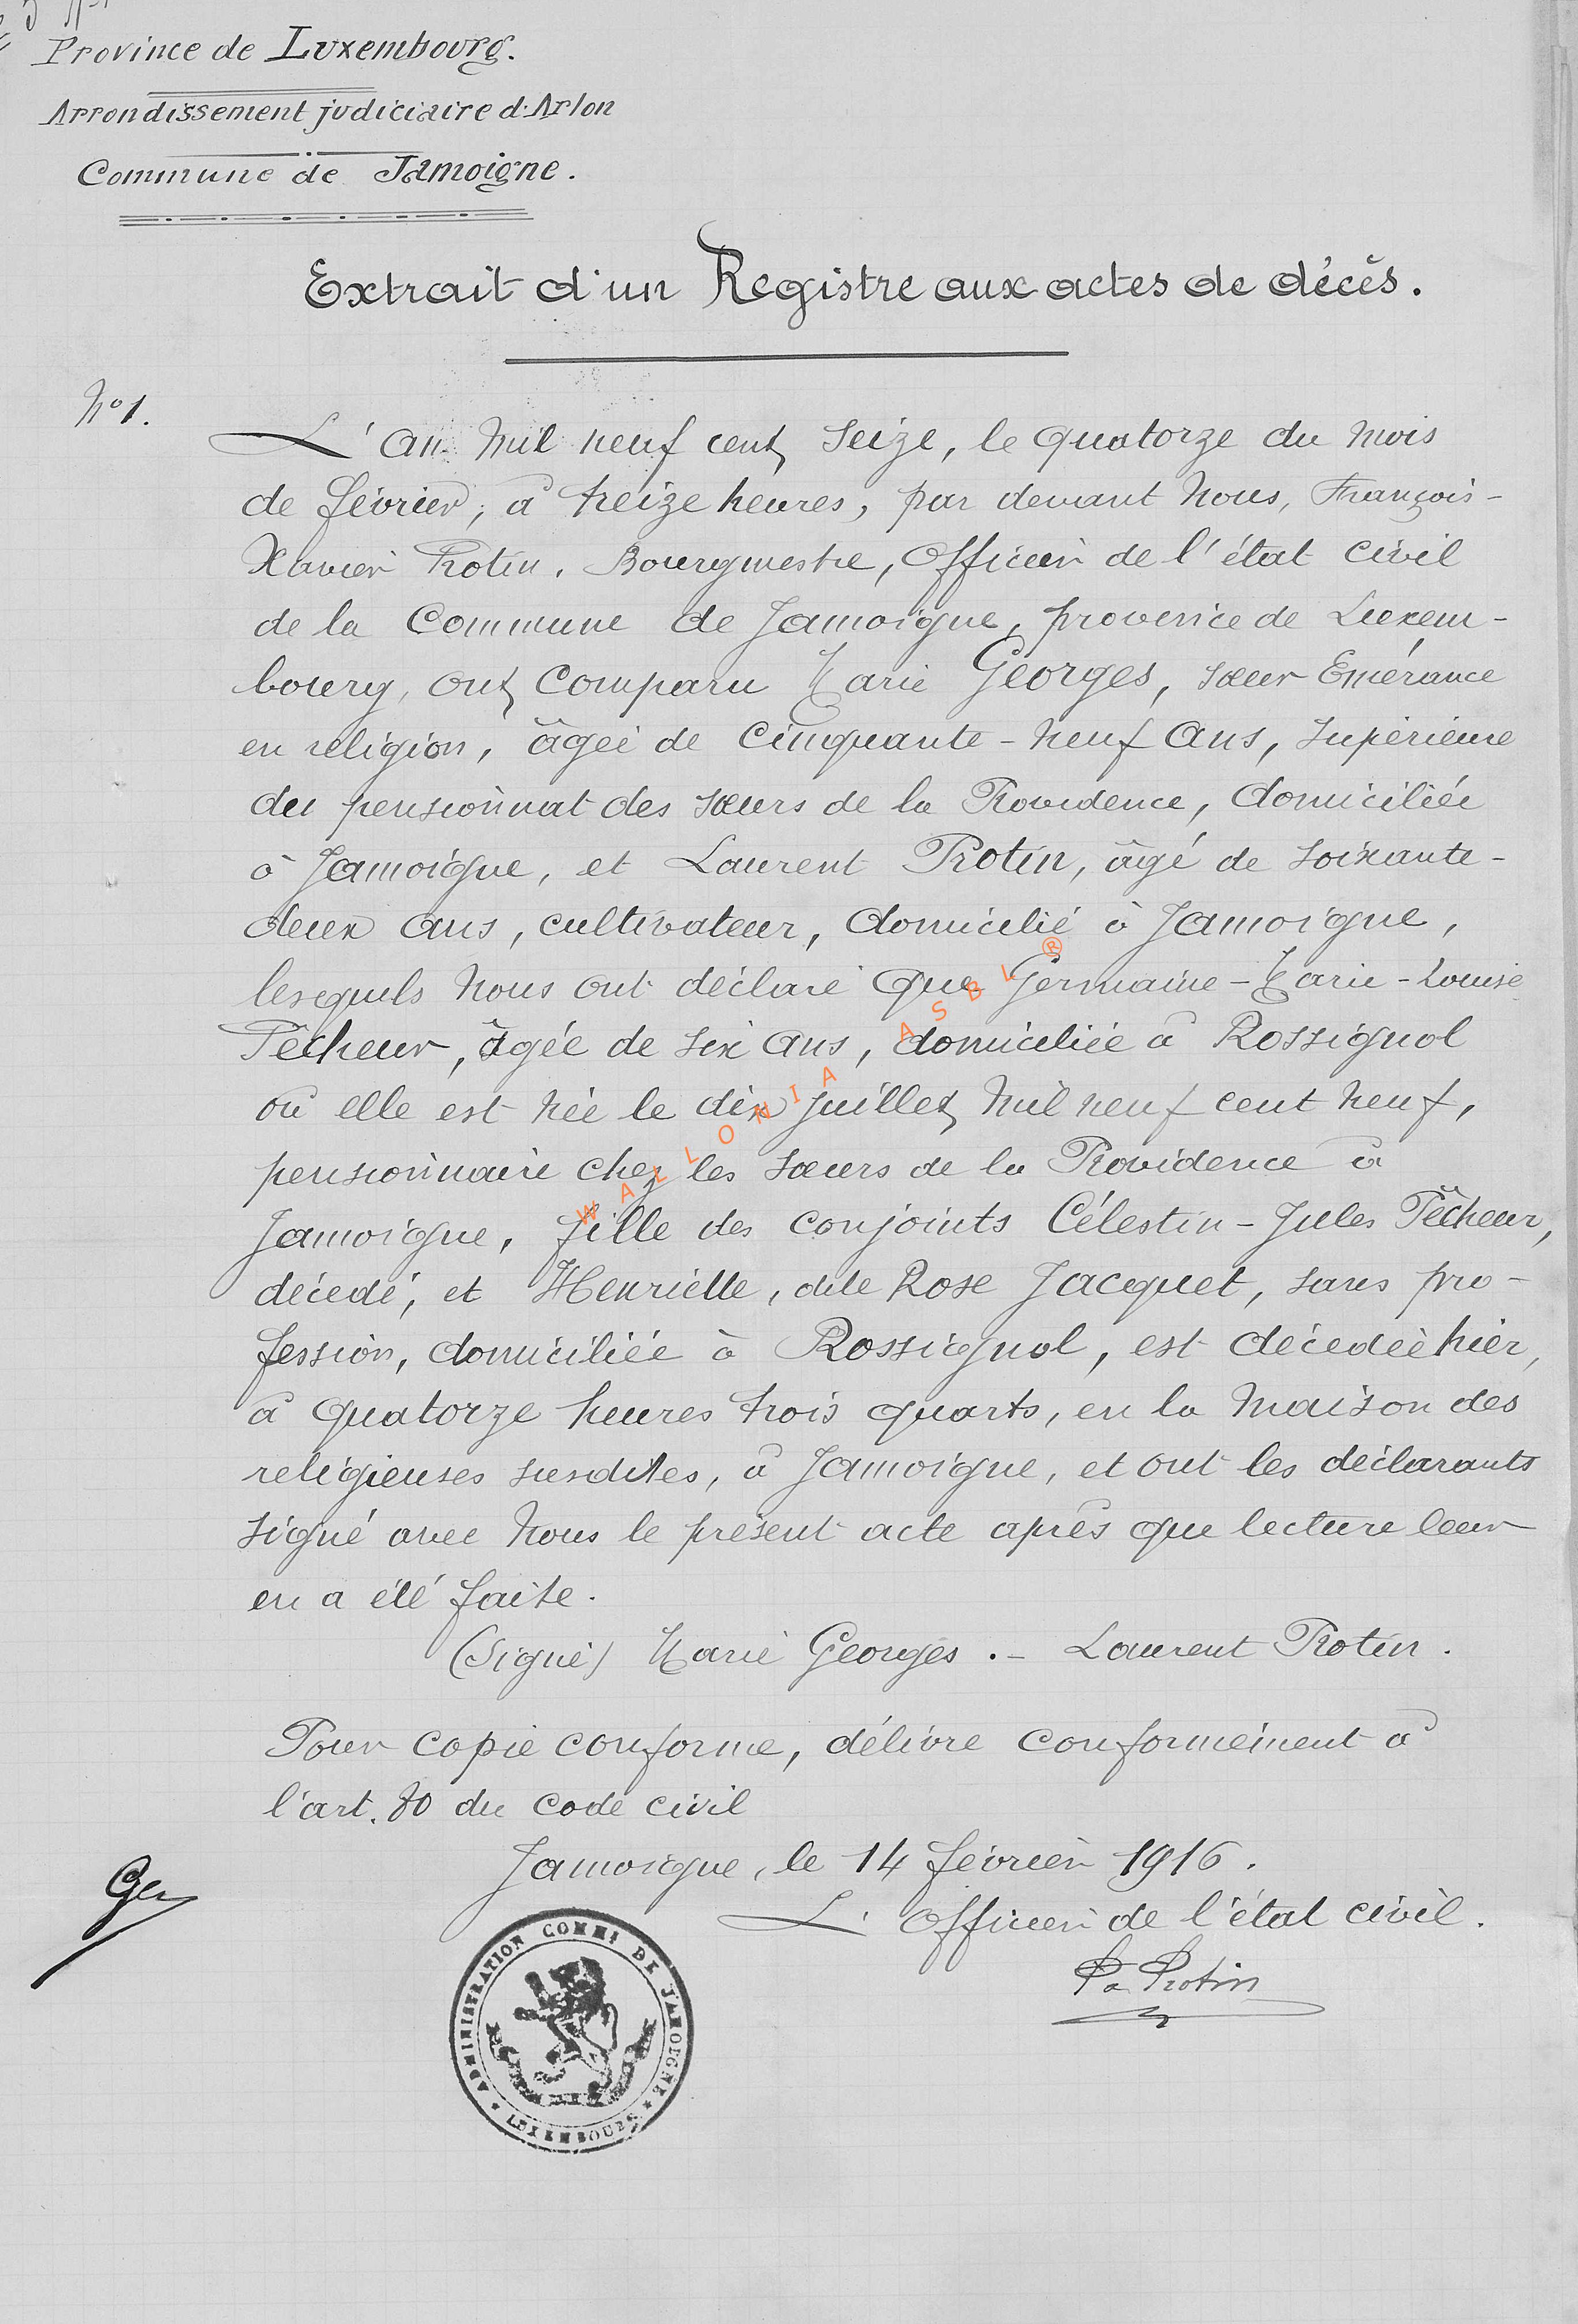 Province de Luxembourg.
Arrondissement judiciaire d'Arlon
Commune de Jamoigne.
Extrait d'un Registre aux actes de décès.
N° 1.
L'an mil neuf cent seize, le quatorze du mois
de février, à treize heures, par devant nous, François-
Xavier Protin, Bourgmestre, Officier de l'état civil
de la Commune de Jamoigne, province de Luxem-
bourg, ont comparu Marie Georges, sœur Emérance
en religion, âgée de cinquante-neuf ans, supérieure
du pensionnat des sœurs de la Providence, domiciliée
à Jamoigne, et Laurent Protin, âgé de soixante-
deux ans, cultivateur, domicilié à Jamoigne,
lesquels nous ont déclaré que Germaine-Marie-Louise
Pêcheur, âgée de six ans, domiciliée à Rossignol
où elle est née le dix juillet mil neuf cent neuf,
pensionnaire chez les sœurs de la Providence à
Jamoigne, fille des conjoints Célestin-Jules Pêcheur,
décédé, et Henriette, dite Rose Jacquet, sans pro-
fession, domiciliée à Rossignol, est décédée hier,
à quatorze heures trois quarts, en la maison des
religieuses susdites, à Jamoigne, et ont les déclarants
signé avec nous le présent acte après que lecture leur
en a été faite.
(Signé) Marie Georges. - Laurent Protin.
Pour copie conforme, délivré conformément à
l'art. 80 du code civil
Jamoigne, le 14 février 1916.
L'Officier de l'état civil.
Protin
ADMINISTRATION COMMLE DE JAMOIGNE
* LUXEMBOURG *
WALLONIA ASBL ®